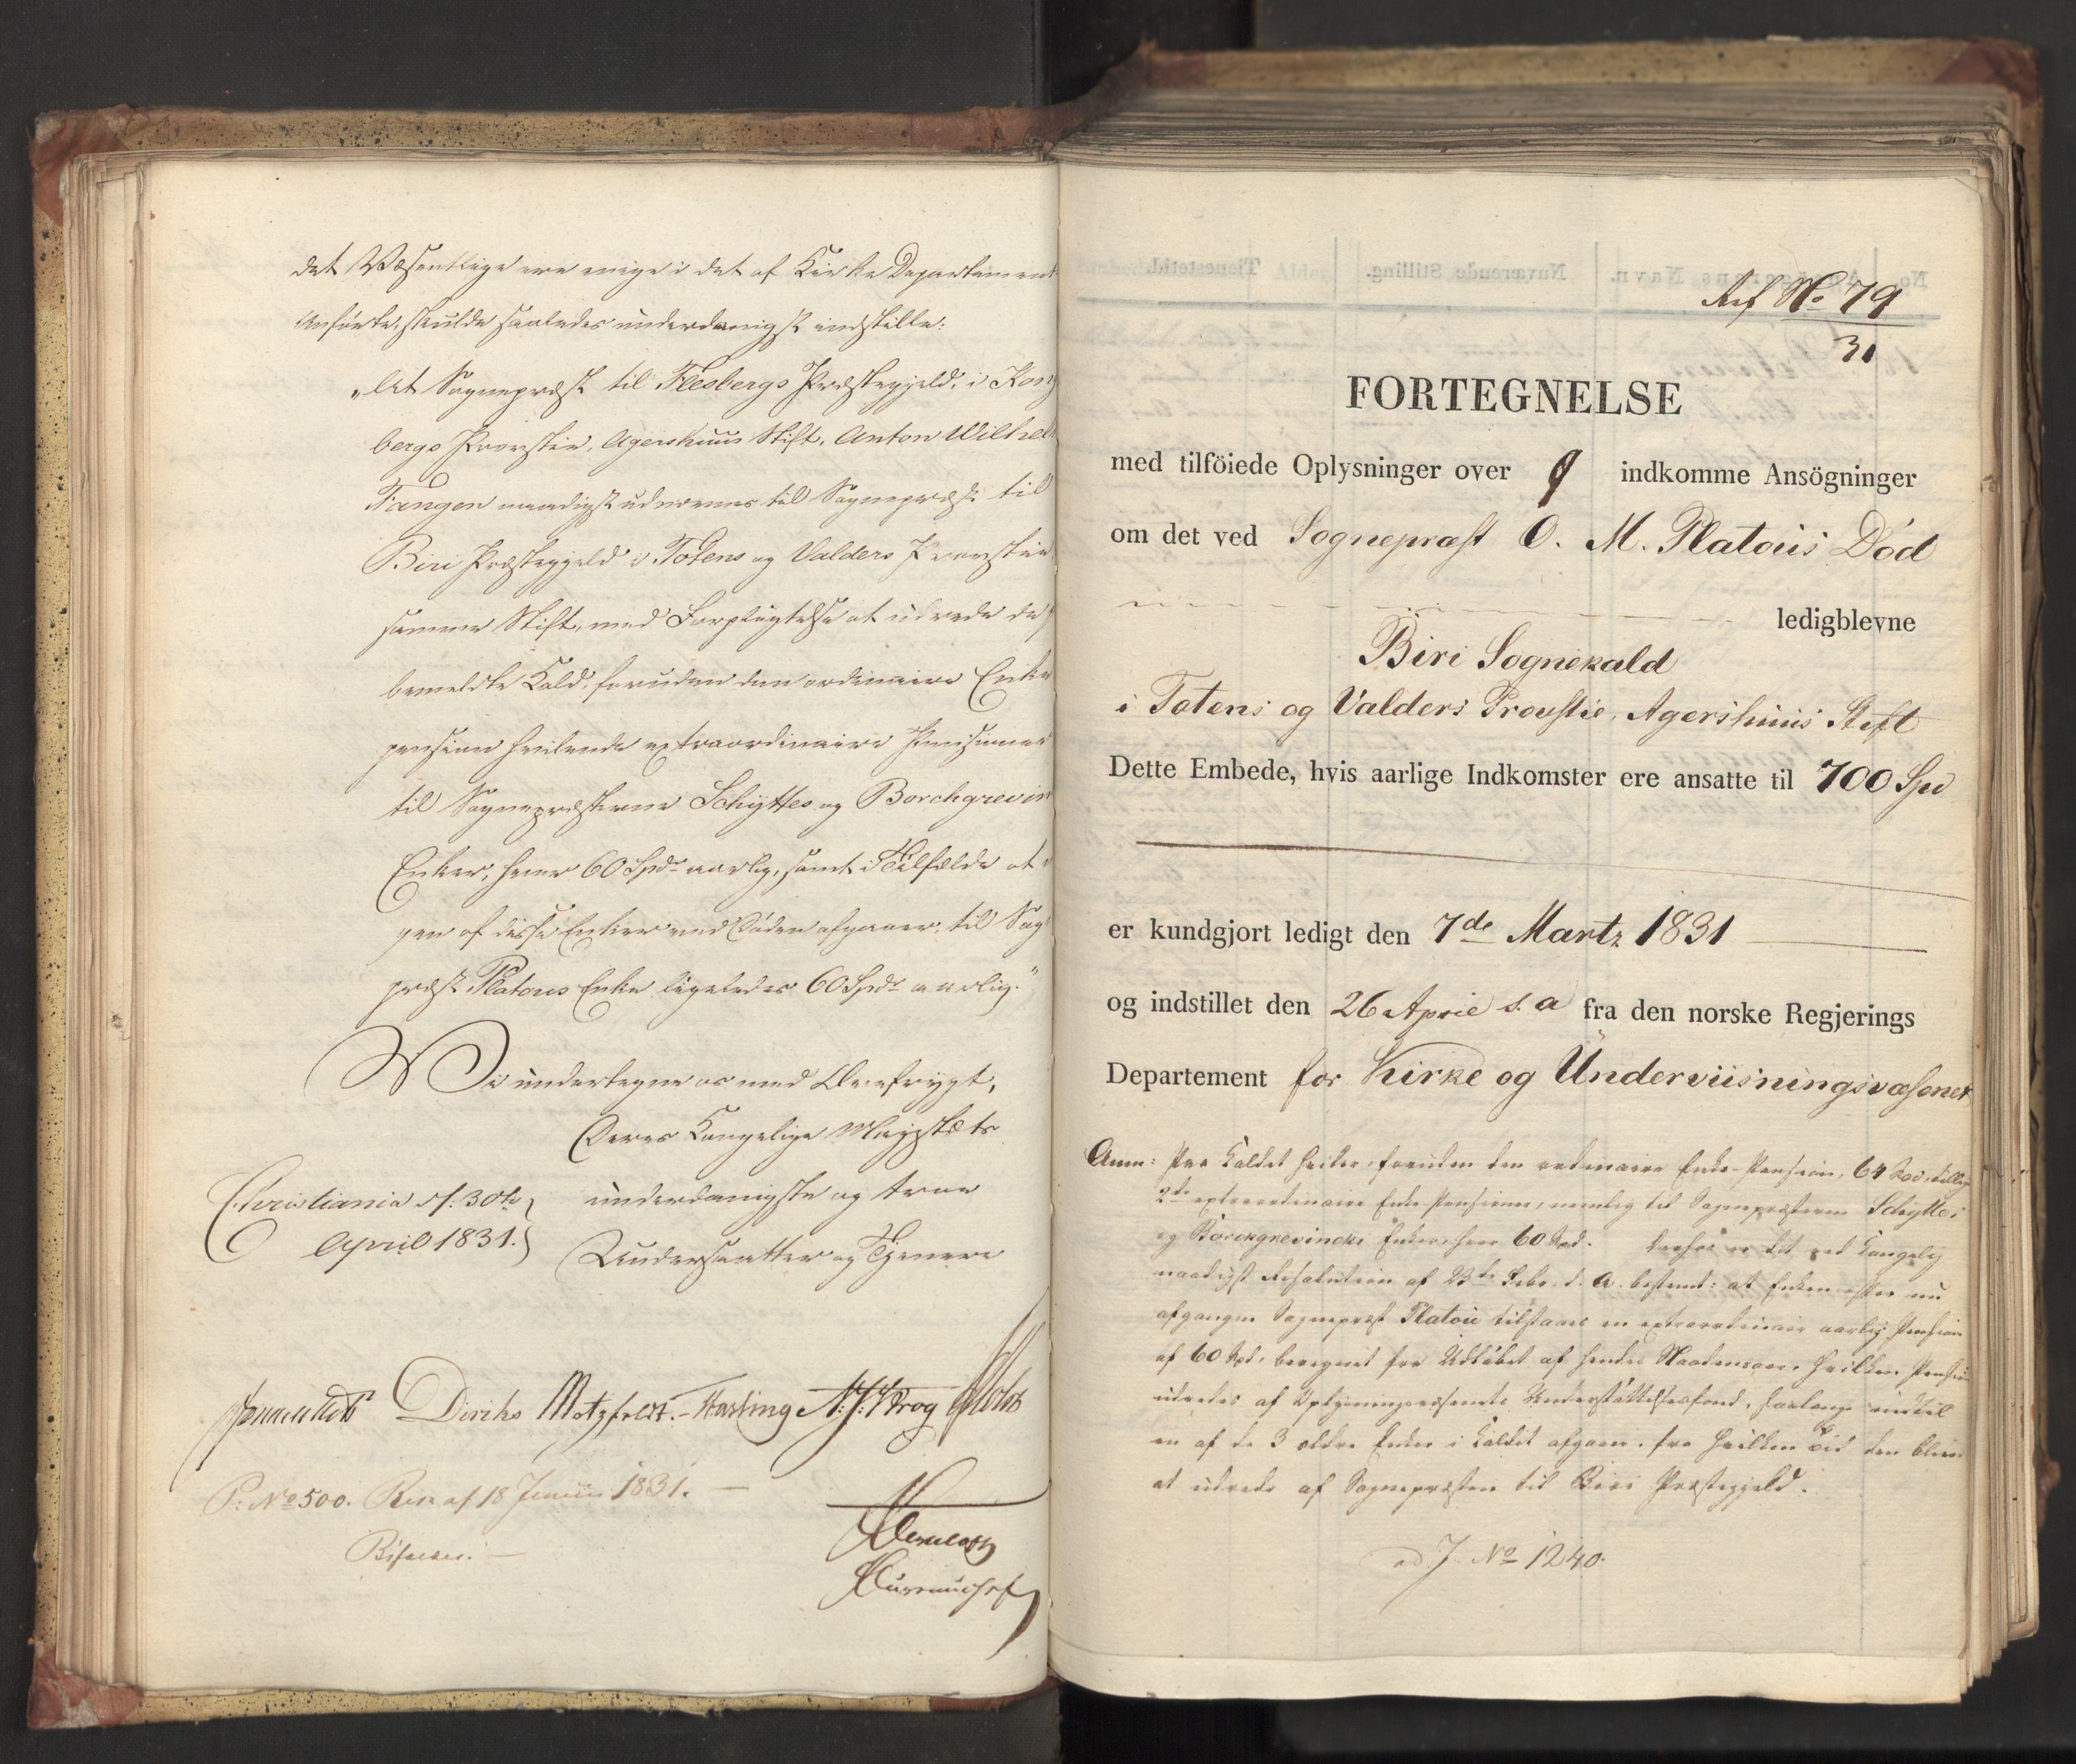 det Væsentlige ere enige i det af Kirke Departement
Anförte, skulde saaledes underdanigst indstille:
"At Sognepræst til Flesbergs Præstegjeld, i Kongs
bergs Provstie, Agershuus Stift, Anton Wilhelm
Fangen naadigst udnævnes til Sognepræst til
Biri Præstegjeld i Totens og Valders Provstie
samme Stift, med Forpligtelse at udrede de
bemeldte Kald, foruden den ordinaire Enke
pension hvilende extraordinaire Pensioner
til Sognepræsterne Schyttes og Borchgrevin
Enker, hver 60 Spd aarlig, samt i Tilfælde at
gen af disse Enker ved Döden afgaaer, til Sog
præst Platous Enke ligeledes 60 Spdr aarlig."
Vi undertegne os med Ærefrygt,
Deres Kongelige Majestæts
Christiania d: 30te underdanigste og troe
April 1831. Undersaatter og Tjenere
Diriks Motzfeldt. Hasting N: J: Krog Holst
P: No 500. Res. af 18 Junii 1831.
Bifaldes.
Ref No 79
31
FORTEGNELSE
med tilföiede Oplysninger over 9 indkomme Ansögninger
om det ved Sognepræst O. M. Platous Död
ledigblevne
Biri Sognekald
i Totens og Valders Provstie, Agershuus Stift
Dette Embede, hvis aarlige Indkomster ere ansatte til 700 Spd
er kundgjort ledigt den 7de Martz 1831
og indstillet den 26 April s. a fra den norske Regjerings
Departement for Kirke og Underviisningsvæsenet
Anm: Paa Kaldet hviler, foruden den ordinaire Enke-Pension, 64 Spd, tillige
2de extraordinaire Enke Pensioner, nemlig til Sognepræsterne Schyttes
og Borchgrevincks Enker, hver 60 Spd. Derhos er det ved Kongelig
naadigst Resolution af 23de Febr. d. A. bestemt: at Enken efter nu
afgangne Sognepræst Platou tilstaaes en extraordinair aarlig Pension
af 60 Spd, beregnet fra Udløbet af hendes Naadensaar, hvilken Pension
udredes af Oplysningsvæsenets Understøttelsesfond, saalænge indtil
en af de 3 ældre Enker i Kaldet afgaaer, fra hvilken Tid den bliver
at udrede af Sognepræsten til Biri Præstegjeld.
ad J. No 1240.